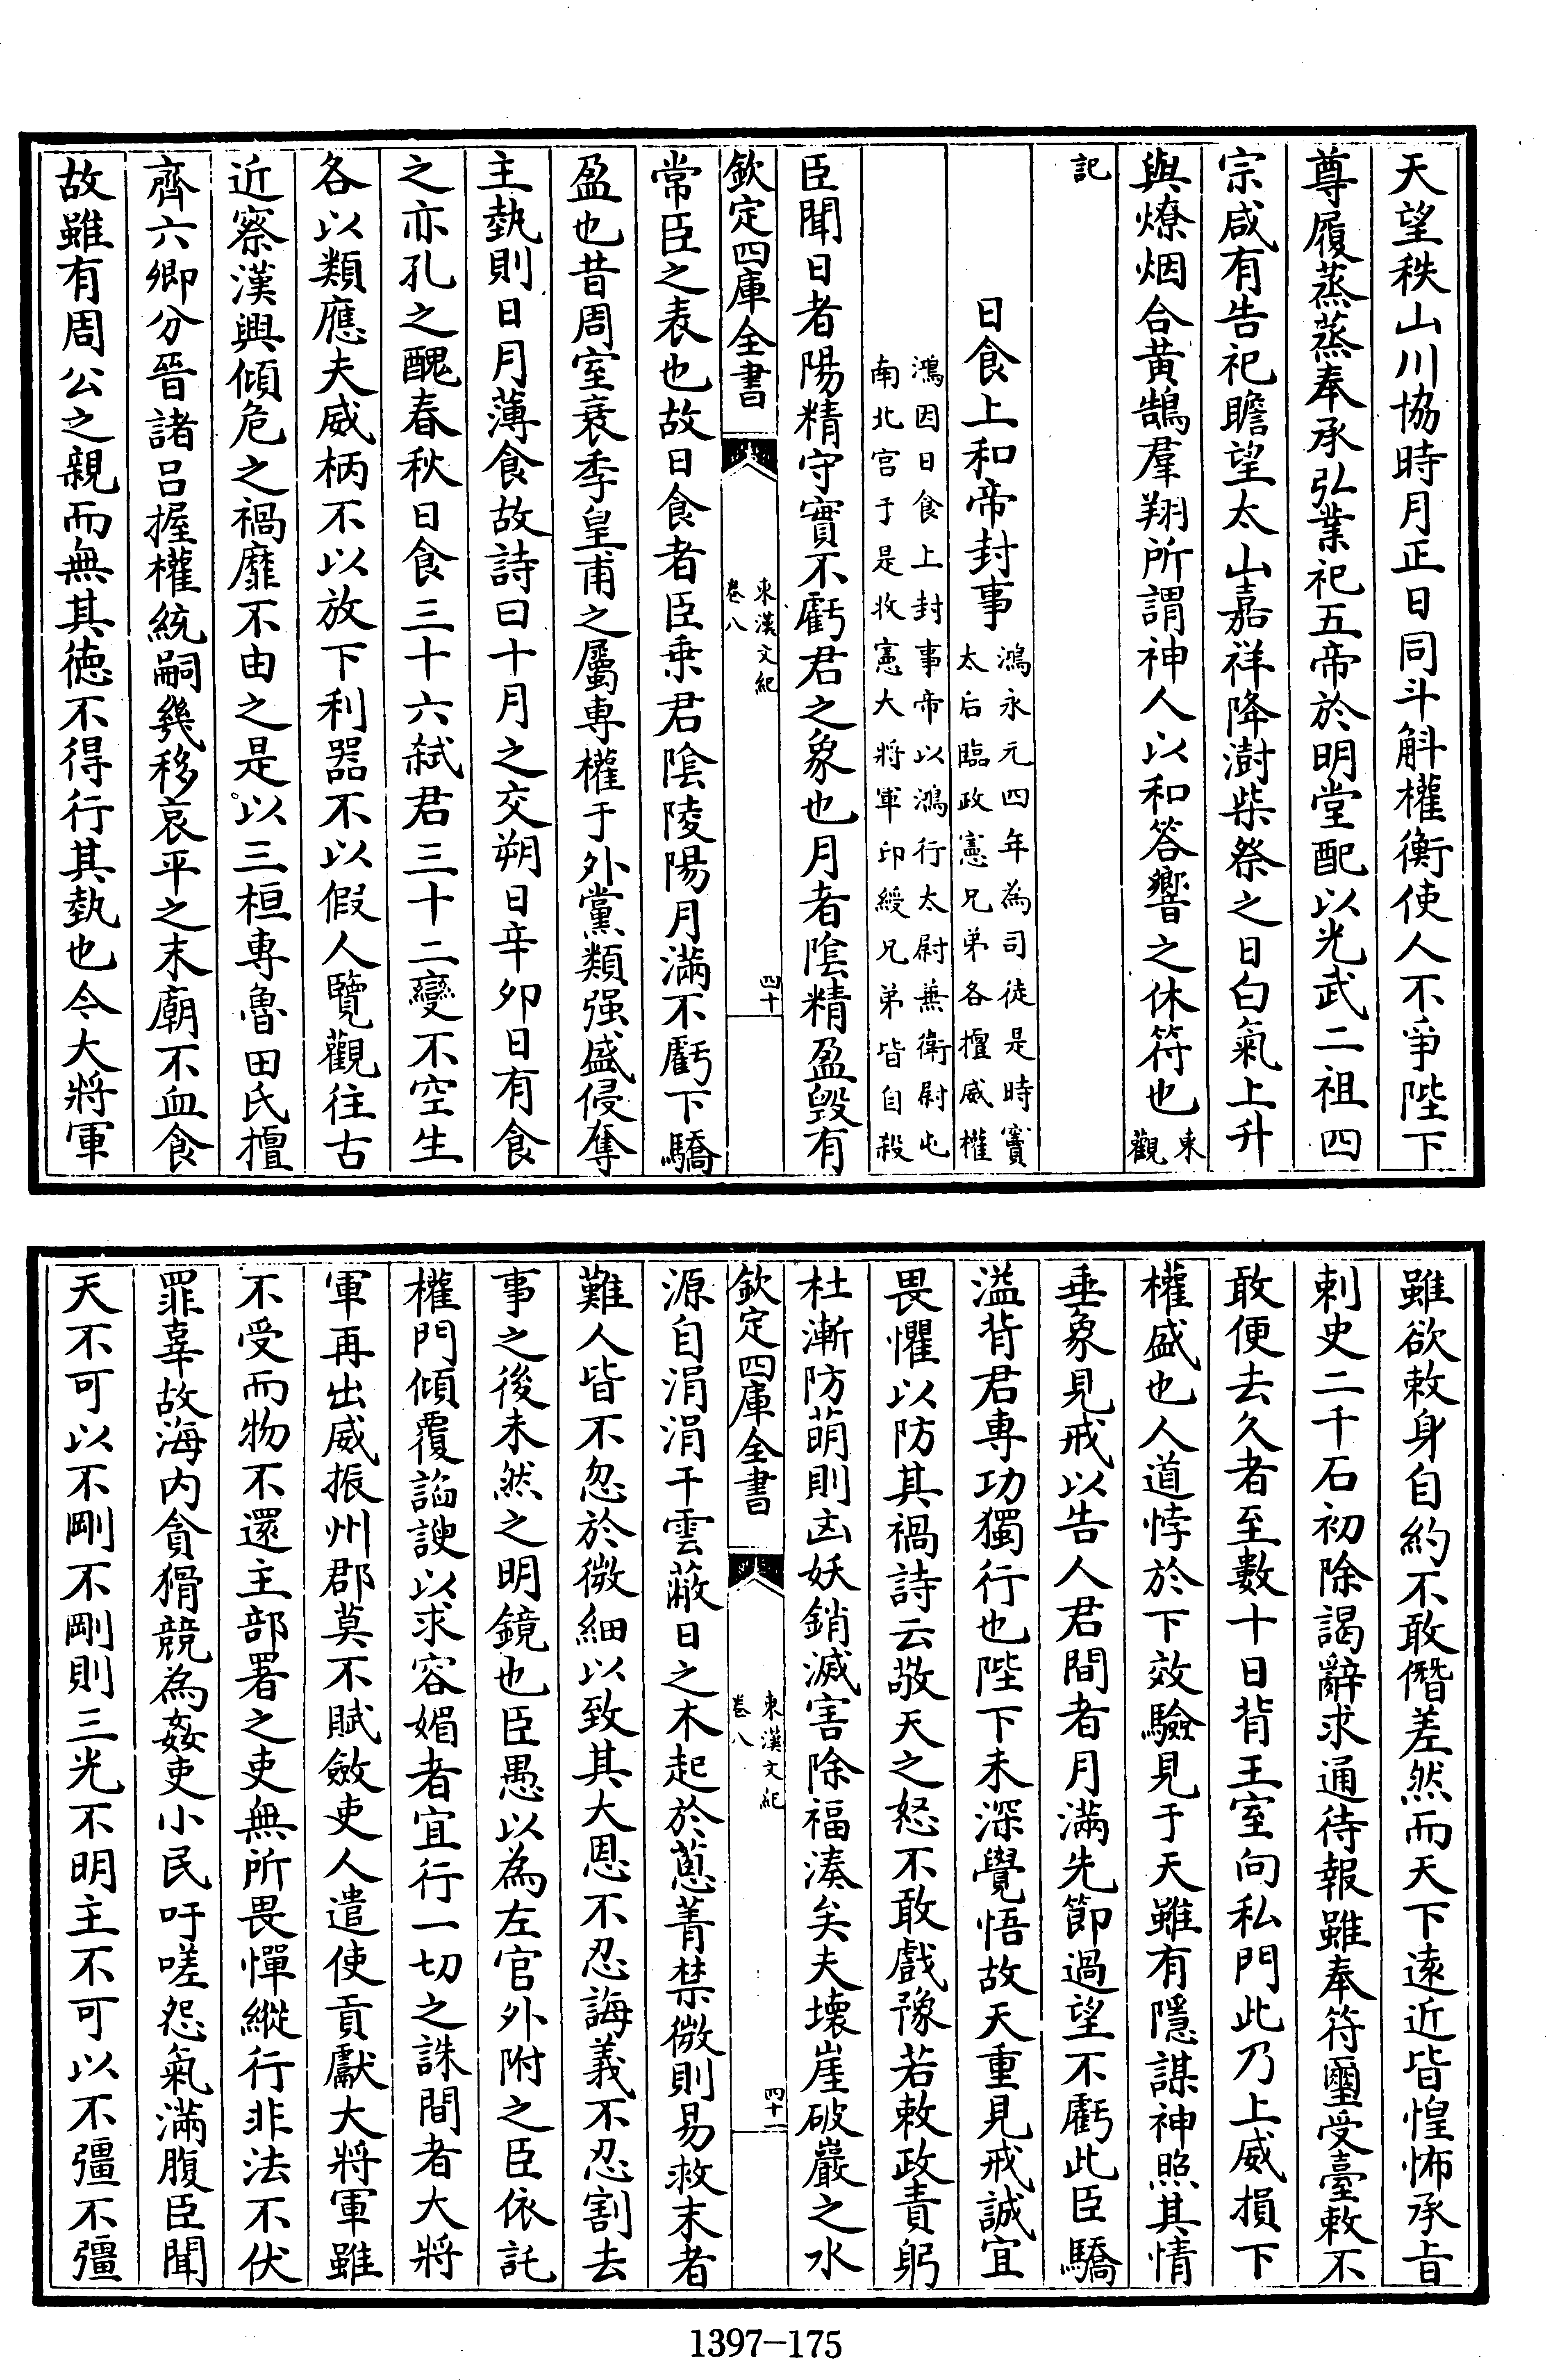 天望秩山川協時月正日同斗斛權衡使人不爭陛下
尊履蒸蒸奉承弘業祀五帝於明堂配以光武二祖四
宗咸有告祀瞻望太山嘉祥降澍柴祭之日白氣上升
與燎烟合黃鵠羣翔所謂神人以和答響之休符也東觀
記
日食上和帝封事鴻永元四年為司徒是時竇太后臨政憲兄弟各擅威權
鴻因日食上封事帝以鴻行太尉兼衛尉屯南北宮于是收憲大將軍印綬兄弟皆自殺
臣聞日者陽精守實不虧君之象也月者陰精盈毀有
欽定四庫全書
東漢文紀
卷八
四十
常臣之表也故日食者臣乗君陰陵陽月滿不虧下驕
盈也昔周室衰季皇甫之屬專權于外黨類强盛侵奪
主埶則日月薄食故詩曰十月之交朔日辛卯日有食
之亦孔之醜春秋日食三十六弑君三十二變不空生
各以類應夫威柄不以放下利器不以假人覽觀往古
近察漢興傾危之禍靡不由之是以三桓專魯田氏擅
齊六卿分晉諸呂握權統嗣幾移哀平之末廟不血食
故雖有周公之親而無其徳不得行其埶也今大將軍
雖欲敕身自約不敢僭差然而天下逺近皆惶怖承㫖
刺史二千石初除謁辭求通待報雖奉符璽受臺敕不
敢便去久者至數十日背王室向私門此乃上威損下
權盛也人道悖於下效驗見于天雖有隱謀神照其情
垂象見戒以告人君間者月滿先節過望不虧此臣驕
溢背君專功獨行也陛下未深覺悟故天重見戒誠宜
畏懼以防其禍詩云敬天之怒不敢戲豫若敕政責躬
杜漸防萌則凶妖銷滅害除福湊矣夫壊崖破巖之水
欽定四庫全書
東漢文紀
卷八
四十一
源自涓涓干雲蔽日之木起於葱菁禁微則易救末者
難人皆不忽於微細以致其大恩不忍誨義不忍割去
事之後未然之明鏡也臣愚以為左官外附之臣依託
權門傾覆諂諛以求容媚者宜行一切之誅間者大將
軍再出威振州郡莫不賦斂吏人遣使貢獻大將軍雖
不受而物不還主部署之吏無所畏憚縱行非法不伏
罪辜故海内貪猾競為姦吏小民吁嗟怨氣滿腹臣聞
天不可以不剛不剛則三光不明王不可以不彊不彊
1397-175